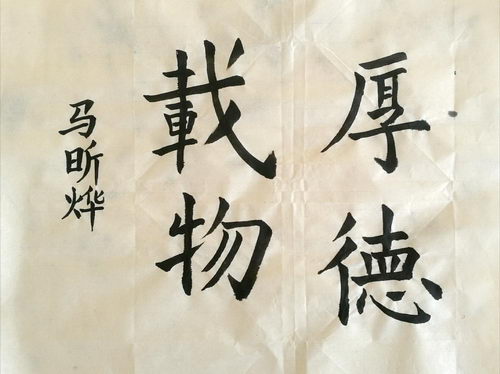 厚德
載物
马昕烨